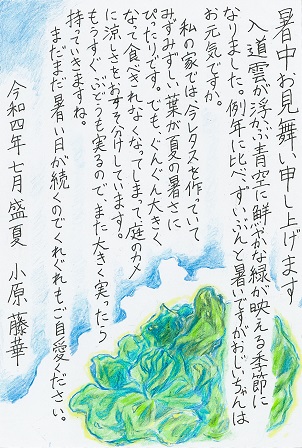 暑中お見舞い申し上げます
入道雲が浮かぶ青空に鮮やかな緑が映える季節に
なりました。例年に比べ、ずいぶんと暑いですがおじいちゃんは
お元気ですか。
私の家では今レタスを作っていて
みずみずしい葉が夏の暑さに
ぴったりです。でも、ぐんぐん大きく
なって食べきれなくなってしまって庭のカメ
に涼しさをおすそ分けしています。
もうすぐぶどうも実るので、また大きく実ったら
持っていきますね。
まだまだ暑い日が続くのでくれぐれもご自愛ください。
令和四年七月盛夏　小原藤華